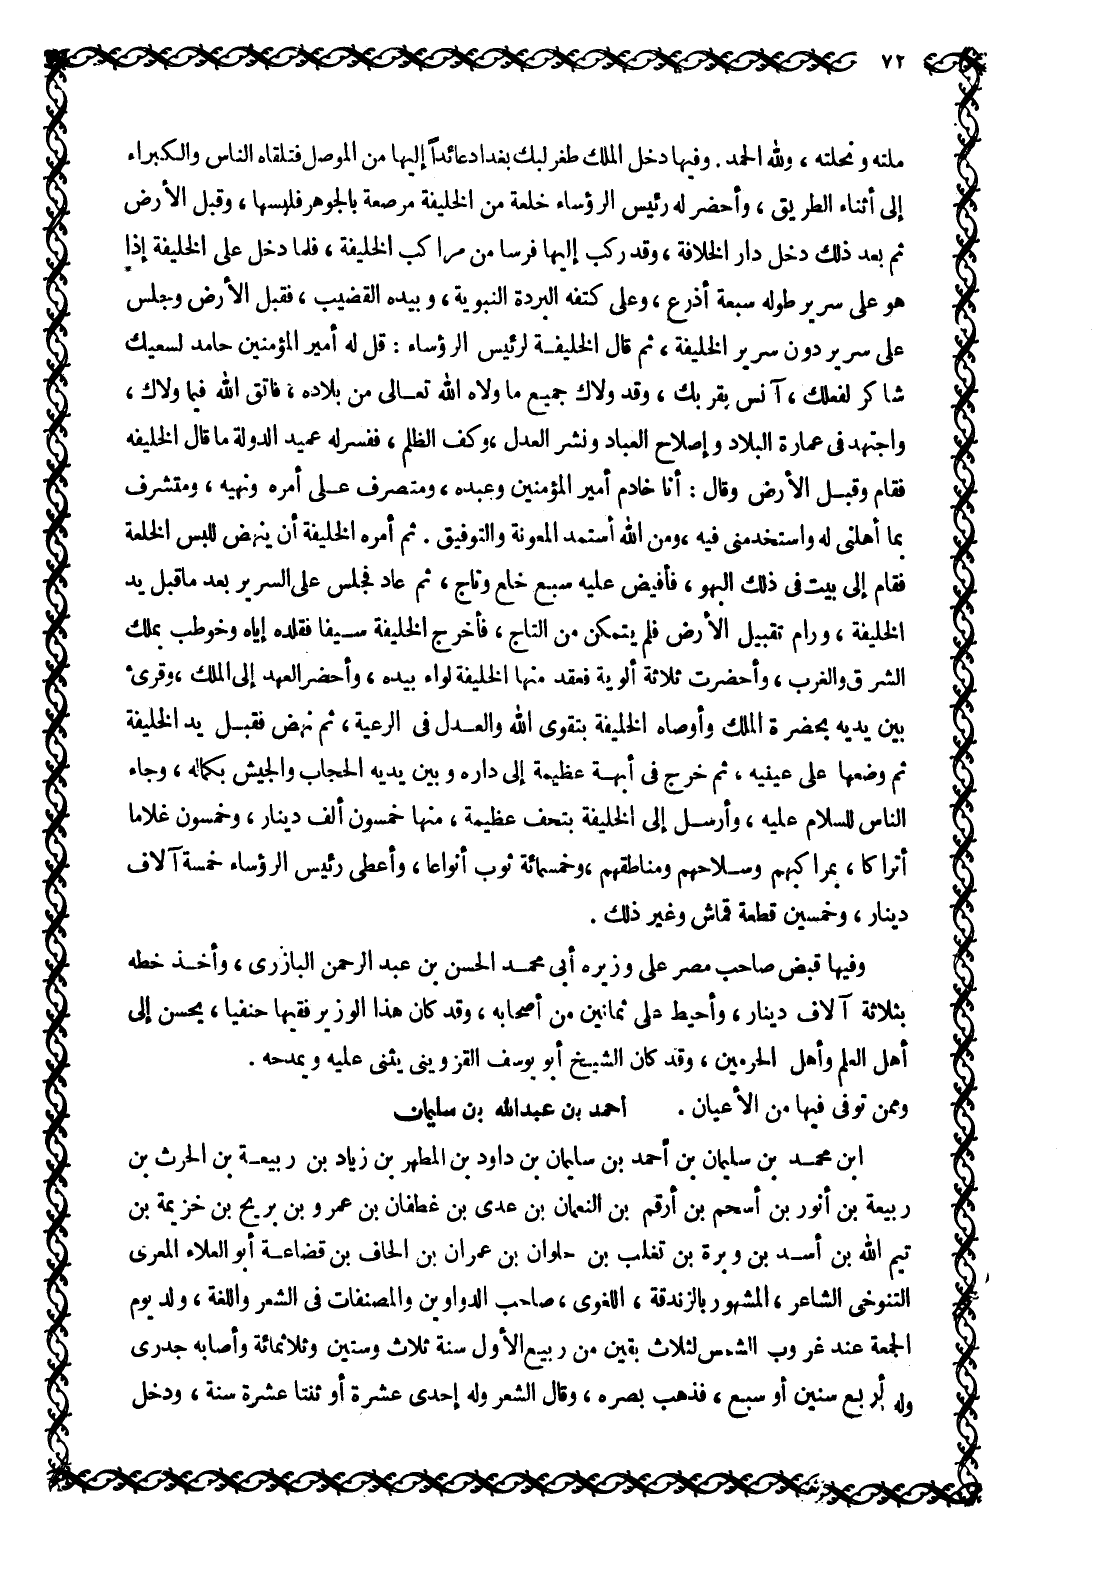 ٧٢
ملته ونحلته ، ولله الحمد . وفيها دخل الملك طغرلبك بغداد عائداً إليها من الموصل فتلقاه الناس والكبراء
إلى أثناء الطريق ، وأحضر له رئيس الرؤساء خلعة من الخليفة مرصعة بالجوهر فلبسها ، وقبل الأرض
ثم بعد ذلك دخل دار الخلافة ، وقد ركب إليها فرسا من مراكب الخليفة ، فلما دخل على الخليفة إذا
هو على سرير طوله سبعة أذرع ، وعلى كتفه البردة النبوية ، وبيده القضيب ، فقبل الأرض وجلس
على سرير دون سرير الخليفة ، ثم قال الخليفة لرئيس الرؤساء : قل له أمير المؤمنين حامد لسعيك
شاكر لفعلك ، آنس بقربك ، وقد ولاك جميع ما ولاه الله تعالى من بلاده ، فاتق الله فيما ولاك ،
واجتهد فى عمارة البلاد وإصلاح العباد ونشر العدل ، وكف الظلم ، ففسر له عميد الدولة ما قال الخليفه
فقام وقبل الأرض وقال : أنا خادم أمير المؤمنين وعبده ، ومتصرف على أمره ونهيه ، ومتشرف
بما أهلنى له واستخدمنى فيه ، ومن الله أستمد المعونة والتوفيق . ثم أمره الخليفة أن ينهض للبس الخلعة
فقام إلى بيت فى ذلك البهو ، فأفيض عليه سبع خلع وتاج ، ثم عاد فجلس على السرير بعد ما قبل يد
الخليفة ، ورام تقبيل الأرض فلم يتمكن من التاج ، فأخرج الخليفة سيفا فقلده إياه وخوطب بملك
الشرق والغرب ، وأحضرت ثلاثة ألوية فعقد منها الخليفة لواء بيده ، وأحضر العهد إلى الملك ، وقرئ
بين يديه بحضرة الملك وأوصاه الخليفة بتقوى الله والعدل فى الرعية ، ثم نهض فقبل يد الخليفة
ثم وضعها على عينيه ، ثم خرج فى أبهة عظيمة إلى داره وبين يديه الحجاب والجيش بكماله ، وجاء
الناس للسلام عليه ، وأرسل إلى الخليفة بتحف عظيمة ، منها خمسون ألف دينار ، وخمسون غلاما
أتراكا ، بمراكبهم وسلاحهم ومناطقهم ، وخمسمائة ثوب أنواعا ، وأعطى رئيس الرؤساء خمسة آلاف
دينار ، وخمسين قطعة قماش وغير ذلك .
وفيها قبض صاحب مصر على وزيره أبى محمد الحسن بن عبد الرحمن البازرى ، وأخذ خطه
بثلاثة آلاف دينار ، وأحيط على ثمانين من أصحابه ، وقد كان هذا الوزير فقيها حنفيا ، يحسن إلى
أهل العلم وأهل الحرمين ، وقد كان الشيخ أبو يوسف القزوينى يثنى عليه ويمدحه .
وممن توفى فيها من الأعيان . أحمد بن عبدالله بن سليمان
ابن محمد بن سليمان بن أحمد بن سليمان بن داود بن المطهر بن زياد بن ربيعة بن الحرث بن
ربيعة بن أنور بن أسحم بن أرقم بن النعمان بن عدى بن غطفان بن عمرو بن بريح بن خزيمة بن
تيم الله بن أسد بن وبرة بن تغلب بن حلوان بن عمران بن الحاف بن قضاعة أبو العلاء المعرى
التنوخى الشاعر ، المشهور بالزندقة ، اللغوى ، صاحب الدواوين والمصنفات فى الشعر واللغة ، ولد يوم
الجمعة عند غروب الشمس لثلاث بقين من ربيع الأول سنة ثلاث وستين وثلاثمائة وأصابه جدرى
وله أربع سنين أو سبع ، فذهب بصره ، وقال الشعر وله إحدى عشرة أو ثنتا عشرة سنة ، ودخل